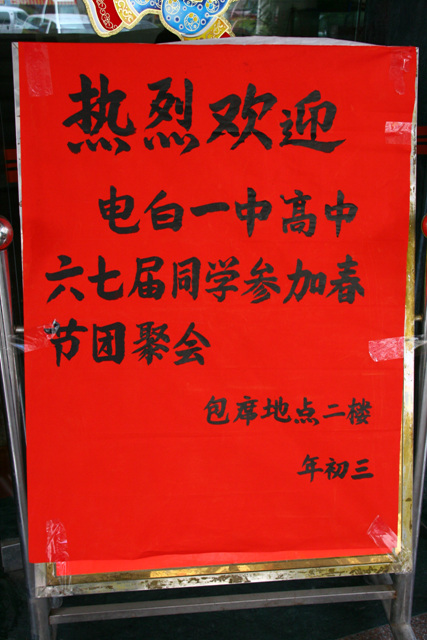 热烈欢迎
电白一中高中
六七届同学参加春
节团聚会
包席地点二楼
年初三